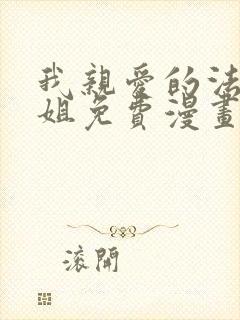 我親愛的法
姐免費漫畫
滾開